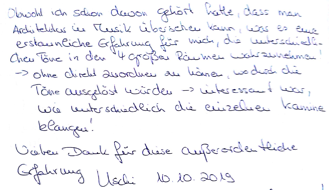 Obwohl ich schon davon gehört hatte, dass man
Architektur in Musik übersetzen kann, war es eine
erstaunliche Erfahrung für mich, die unterschied-
lichen Töne in den 4 großen Räumen wahrzunehmen!
→ ohne direkt zuordnen zu können, wodurch die
Töne ausgelöst würden → interessant war,
wie unterschiedlich die einzelnen Räume
klangen!
Vielen Dank für diese außerordentliche
Erfahrung Uschi 10.10.2019